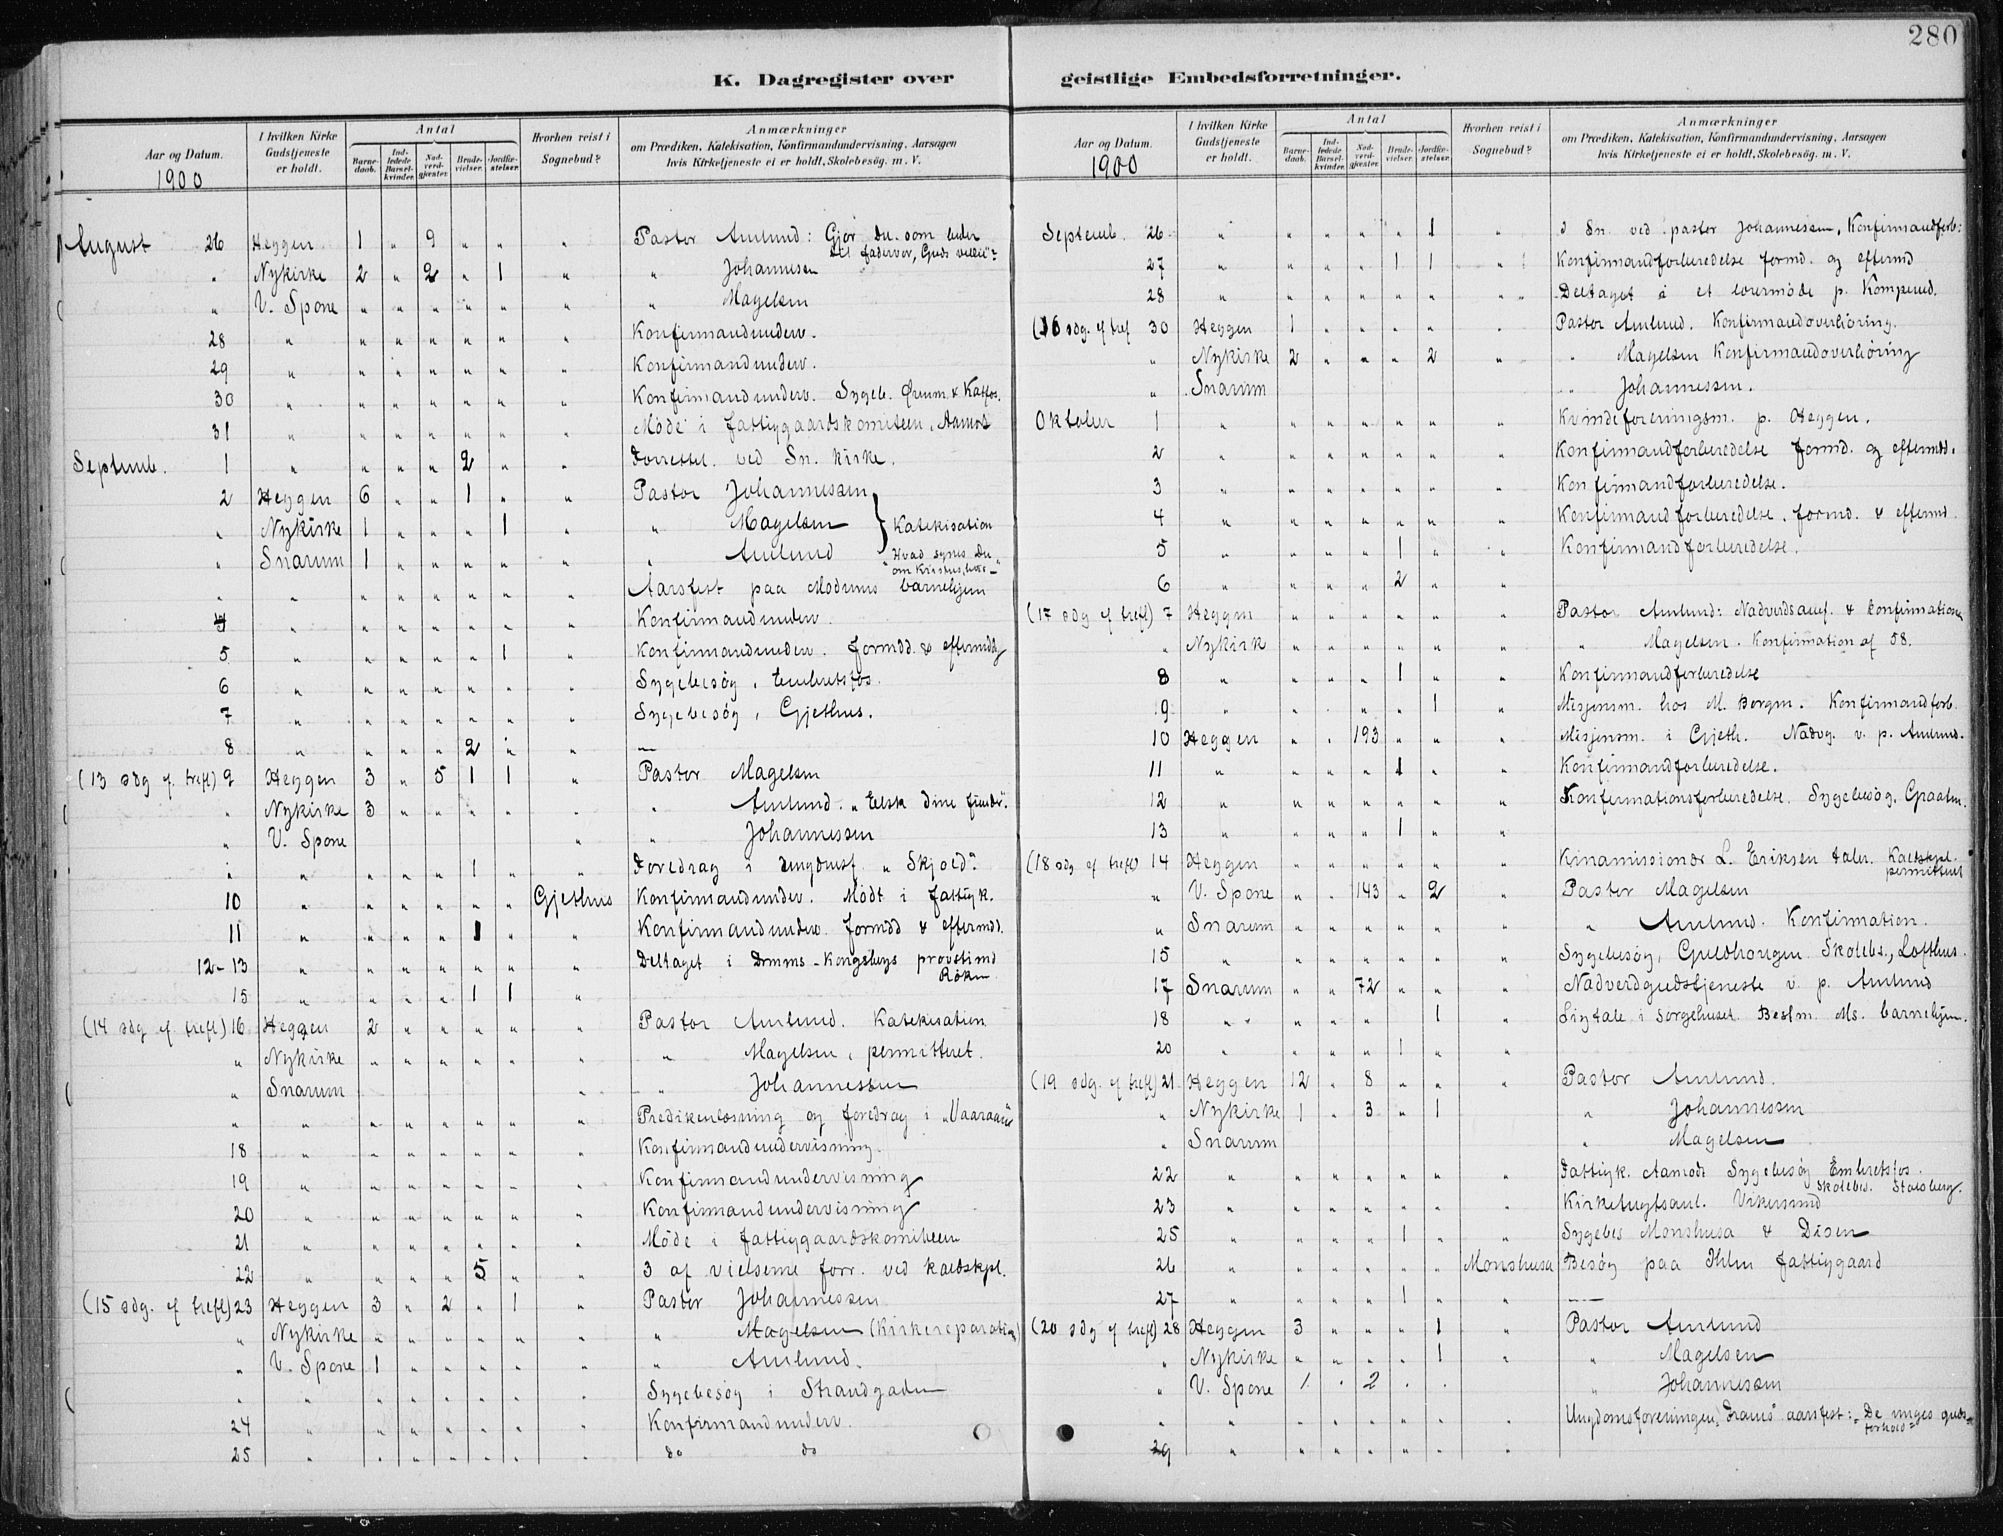 280
K. Dagregister over
Aar og Datum.
1900
I hvilken Kirke Gudstjeneste er holdt.
Antal
Barnedaab.
Indledede Barselkvinder.
Nadverdgjester.
Brudevielser.
Jordfæstelser.
Hvorhen reist i Sognebud?
Anmærkninger
om Prædiken, Katekisation, Konfirmandundervisning, Aarsagen
hvis Kirketjeneste ei er holdt, Skolebesøg. m. V.
August 26 Heggen 1 " 9 " " " Pastor Amlund: Gjør Du som beder
til fadervor, Guds vilie"?
" Nykirke 2 " 2 " 1 " " Johannesen
" V. Spone " " " " " " " Magelsen
28 " " " " " " " Konfirmandunderv.
29 " " " " " " " Konfirmandunderv.
30 " " " " " " " Konfirmandunderv. Sygeb. Øreum & Katfos.
31 " " " " " " " Møde i fattiggaardskomiteen, Aamot
Septemb. 1 " " " " 2 " " Forrettet. ved Sn. kirke.
2 Heggen 6 " " 1 " " Pastor Johannessen
" Nykirke 1 " " " 1 " " Magelsen } Katekisation
" Snarum 1 " " " " " " Amlund "Hvad synes Du
om Kristus, hvis –"
" " " " " " " " Aarsfest paa Modums barnehjem
4 " " " " " " " Konfirmandunderv.
5 " " " " " 1 " Konfirmandunderv. formdd. & eftermdg
6 " " " " " " " Sygebesøg, Embretsfos.
7 " " " " " " " Sygebesøg, Gjethus.
8 " " " " 2 " " —
(13 sdg e. trefl) 9 Heggen 3 " 5 1 1 " Pastor Magelsen
" Nykirke 3 " " " " " " Amlund: "Elsk dine fiender".
" V. Spone " " Johannessen
" " " " " 1 " " Foredrag i ungdomsf. "Skjold".
10 " " " " " " Gjethus Konfirmandunderv. Mødt i fattigk.
11 " " " " 1 " " Konfirmandunderv. formdd & eftermdd.
12-13 " " " " " " " Deltaget i Drmms-Kongsbergs provstimd
Røken
15 " " " " 1 1 "
(14 sdg e trefl) 16 Heggen 2 " " " " " Pastor Amlund. Katekisation
" Nykirke " " " " " " " Magelsen, permitteret.
" Snarum " " Johannessen
" " " " " " " " Predikenlæsning og foredrag i "Vaaraand"
18 " " " " " " " Konfirmandundervisning.
19 " " " " " " " Konfirmandundervisning
20 " " " " " " " Konfirmandundervisning
21 " " " " " " " Møde i fattiggaardskomiteen
22 " " " " 5 " " 3 af vielserne forr. ved kaldskpl.
(15 sdg. e trefl) 23 Heggen 3 " 2 " 1 " Pastor Johannessen
" Nykirke " " " " " " " Magelsen (Kirkereparation)
" V. Spone 1 " " " " " " Amlund.
" " " " " " " " Sygebesøg i Strandgaden
24 " " " " " " " Konfirmandunderv.
25 " " " " " " " do do
geistlige Embedsforretninger.
Aar og Datum.
1900
I hvilken Kirke Gudstjeneste er holdt.
Antal
Barnedaab.
Indledede Barselkvinder.
Nadverdgjester.
Brudevielser.
Jordfæstelser.
Hvorhen reist i Sognebud?
Anmærkninger
om Prædiken, Katekisation, Konfirmandundervisning, Aarsagen
hvis Kirketjeneste ei er holdt, Skolebesøg. m. V.
Septemb. 26 " " " " " 1 " Sn. ved pastor Johannessen, Konfirmandforb:
27 " " " " 1 1 " Konfirmandforberedelse formd. og eftermd
28 " " " " " " " Deltaget i et lærermøde p. Komperud.
(16 sdg. e tref 30 Heggen 1 " " " " " Pastor Amlund. Konfirmandoverhøring.
" Nykirke 2 " " " 2 " " Magelsen Konfirmandoverhøring
" Snarum " Johannessen.
Oktober 1 " " " " " " " Kvindeforeningsm. p. Heggen.
2 " " " " " " " Konfirmandforberedelse formd. og eftermdd.
3 " " " " " " " Konfirmandforberedelse.
4 " " " " " " " Konfirmandforberedelse. formd. & eftermd.
5 " " " " 1 " " Konfirmandforberedelse.
6 " " " " 2 " "
(17 sdg e trefl) 7 Heggen " " " " " " Pastor Amlund: Nadverdsauf. & konfirmation
" Nykirk " " " " " " " Magelsen. Konfirmation af 58.
8 " " " " 1 " " Konfirmandforberedelse
9 " " " " " 1 " Misjonsm. hos M. Bergm. Konfirmandforb.
10 Heggen " " 193 " " " Misjonsm. i Gjeth. Nadvg. v. p. Amlund.
11 " " " " 1 " " Konfirmandforberedelse.
12 " " " " " " " Konfirmationsforberedelse. Sygebesøg,
13 " " " " 1 " "
(18 sdg e trefl) 14 Heggen " " " " " " Kinamissionær L. Eriksen taler. Kaldskpl.
permitteret
" V. Spone " " 143 " 2 " Pastor Magelsen
" Snarum " " " " " " " Amlund. Konfirmation.
15 " " " " " " " Sygebesøg, Guldhougen. Skolebs., Lofthus.
17 Snarum " " 72 " " " Nadverdgudstjeneste v. p. Amlund
18 " " " " " 1 " Ligtale i sorgehuset. Bestm. Ms. barnehjem.
20 " " " " 1 " "
(19 sdg. e trefl) 21 Heggen 12 " 8 " " " Pastor Amlund.
" Nykirke 1 " 3 " 1 " " Johannessen
" Snarum " Magelsen
22 " " " " " " " Fattigk. Aamodt Sygebesøg Embretsfos.
Skolebes. Stalsberg.
23 " " " " " " " Vikersund
25 " " " " 1 " " Sygebes Monshusa & Disen
26 " " " " " " Monshusa Besøg paa Ihlen fattiggaard
27 " " " " 1 " " —
(20 sdg e trefl) 28 Heggen 3 " " " 1 " Pastor Amlund
" Nykirke " " " " 1 " " Magelsen
" V. Spone 1 " 2 " " " Johannessen
" " " " " " " " Ungdomsforeningen "Frams" aarsfest: "De unges guds-
forhold"
29 " " " " " " "